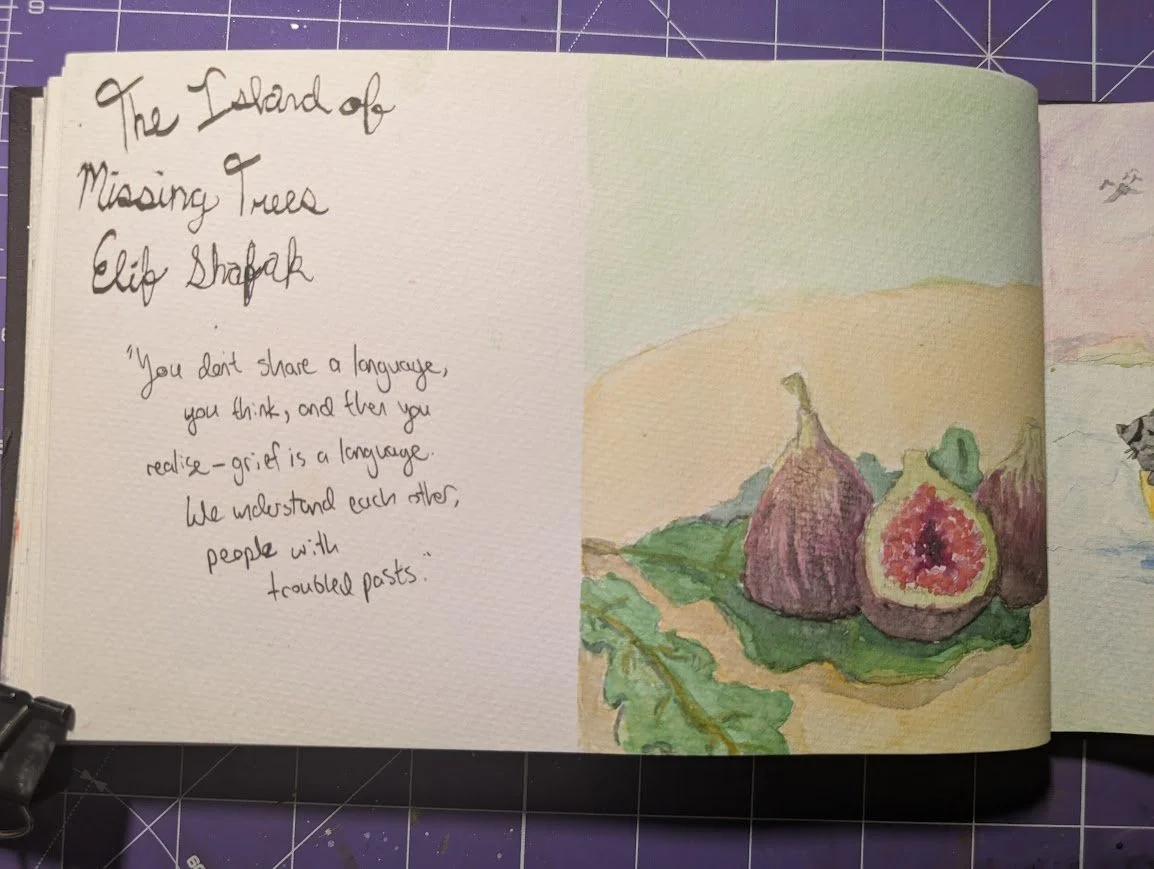 The Island of
Missing Trees
Elif Shafak
"You don't share a language,
you think, and then you
realise - grief is a language.
We understand each other,
people with
troubled pasts."